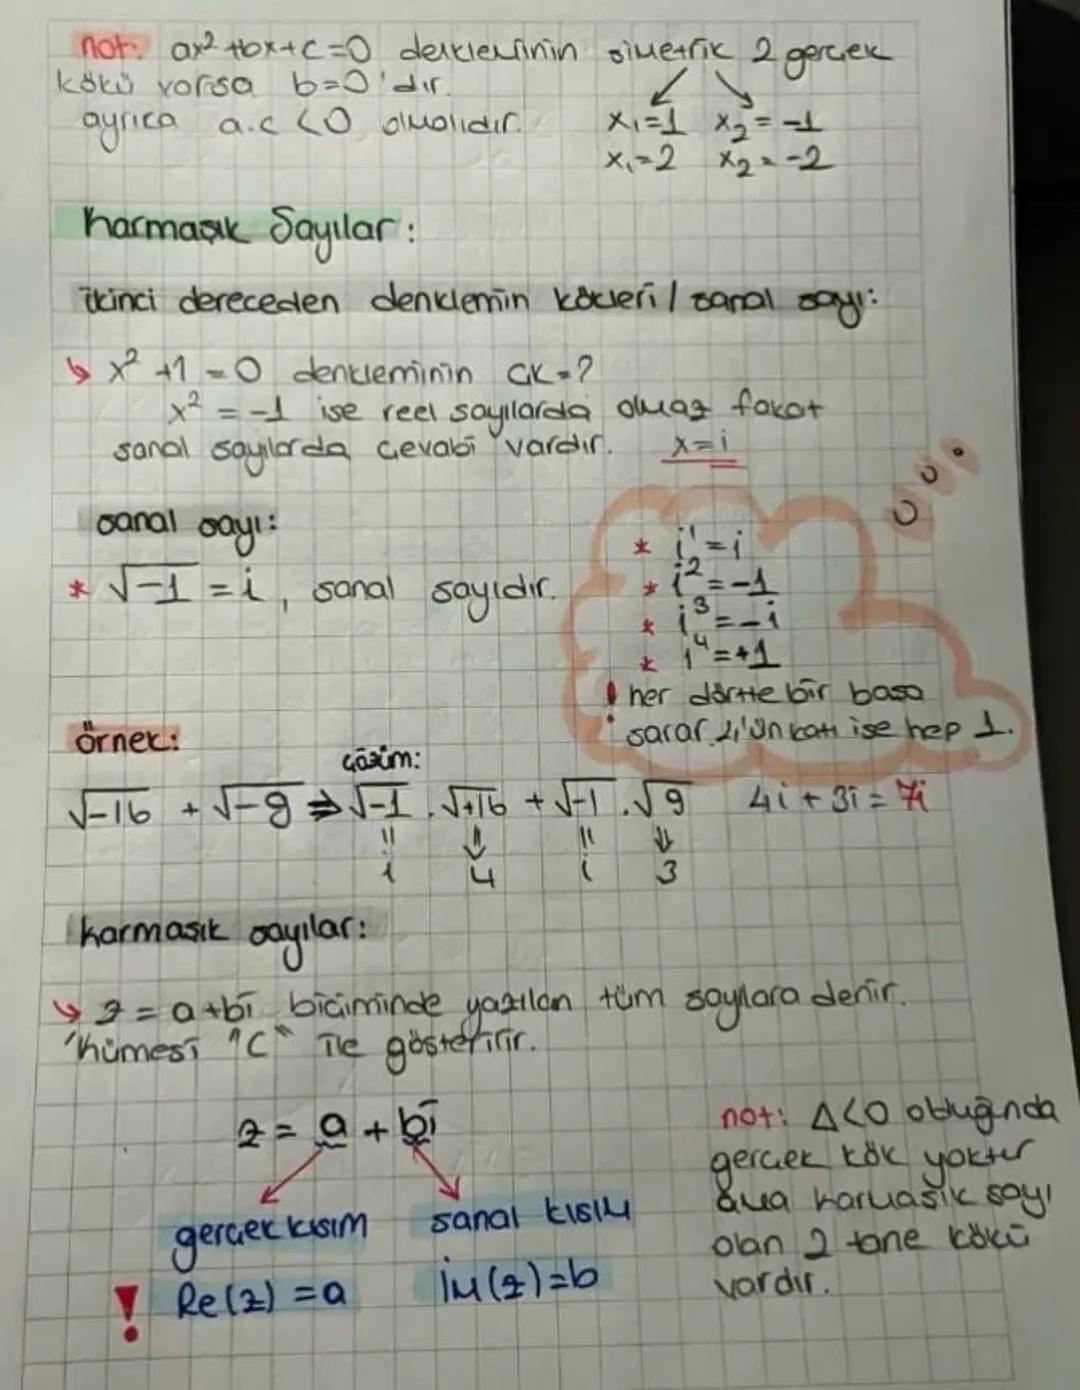 not: ax² +bx+c=0 denkleminin simetrik 2 gerçek
kökü varsa b=0'dır.
ayrıca a.c <0 olmalıdır.
x₁=1 x₂=-1
x₁=2 x₂=-2
Karmaşık Sayılar:
ikinci dereceden denklemin kökleri / sanal sayı:
↳ x² +1 =0 denkleminin ÇK=?
x² = -1 ise reel sayılarda olmaz fakat
sanal sayılarda cevabı vardır. x=i
sanal sayı:
* √-1 = i, sanal sayıdır.
* i¹ = i
* i² = -1
* i³ = -i
* i⁴ = +1
! her dörtte bir başa
sarar. 4'ün katı ise hep 1.
örnek:
çözüm:
√-16 + √-9 ⇒ √-1 . √+16 + √-1 . √9 4i + 3i = 7i
i 4 i 3
karmaşık sayılar:
↳ z = a+bi biçiminde yazılan tüm sayılara denir.
"kümesi "C" ile gösterilir.
z = a + bi
gerçek kısım sanal kısım
! Re(z) = a İm(z)=b
not: Δ<0 olduğında
gerçek kök yoktur
ama karmaşık sayı
olan 2 tane kökü
vardır.